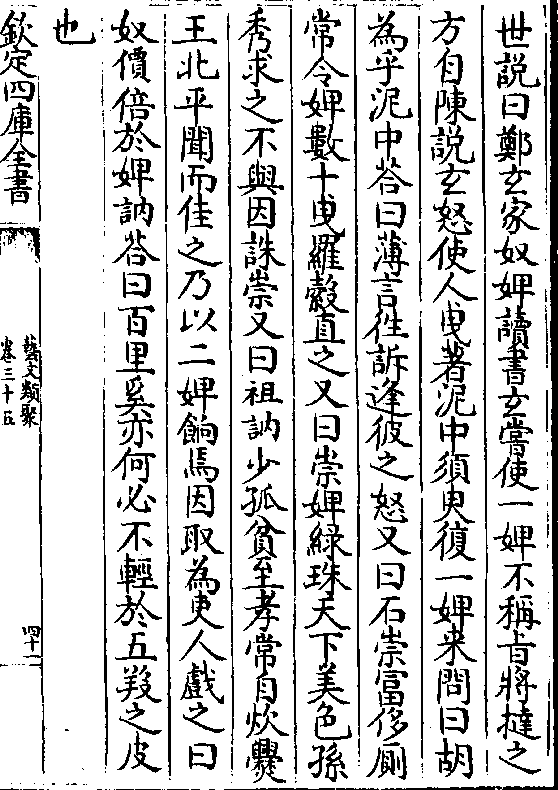 世說曰鄭玄家奴婢讀書玄嘗使一婢不稱旨將撻之
方自陳說玄怒使人曳著泥中須臾復一婢来問曰胡
為乎泥中荅曰薄言徃訴逢彼之怒又曰石崇富侈厠
常令婢數十曳羅縠直之又曰崇婢緑珠天下美色孫
秀求之不與因誅崇又曰祖訥少孤貧至孝常自炊爨
王北平聞而佳之乃以二婢餉焉因取為吏人戲之曰
奴價倍於婢訥荅曰百里奚亦何必不輕於五羖之皮
也
欽定四庫全書
藝文類聚
卷三十五
四十一